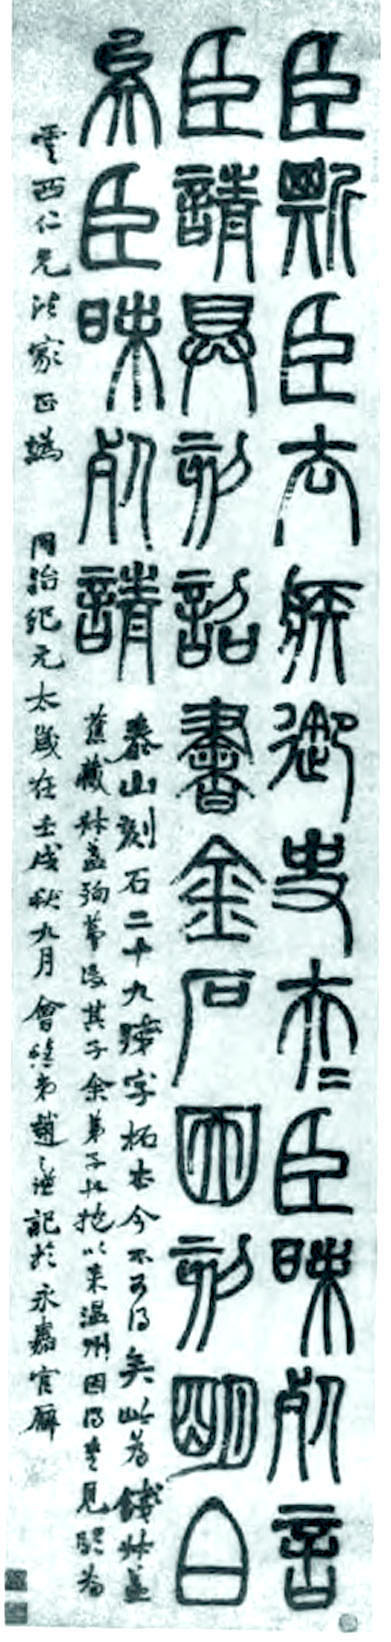 臣斯臣去疾御史夫〓臣昧死言
臣請具刻詔書金石因刻明白
矣臣昧死請
泰山刻石二十九殘字拓本今不可得矣此為錢叔蓋
舊藏叔蓋殉節後其子余弟子式抱以來溫州因得重見臨為
雲西仁兄法家正譌 同治紀元太歲在壬戌秋九月會稽弟趙之謙記於永嘉官廨